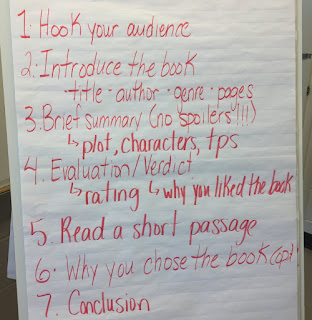 1. Hook your audience
2. Introduce the book
· title · author · genre · pages
3. Brief summary (no spoilers!!!)
↳ plot, characters, tps
4. Evaluation/Verdict
↳ rating ↳ why you liked the book
5. Read a short passage
6. Why you chose the book (opt.)
7. Conclusion